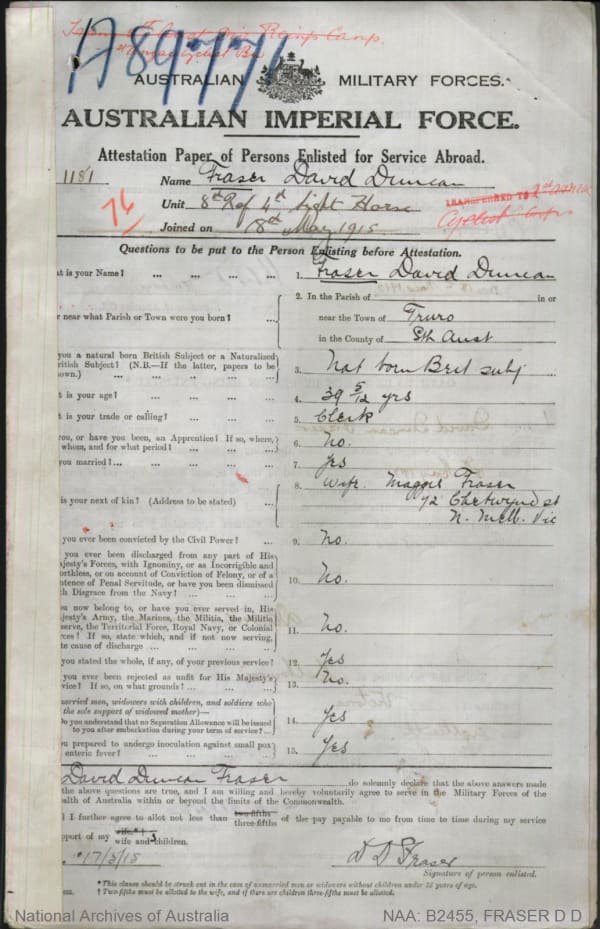 AUSTRALIAN MILITARY FORCES.
AUSTRALIAN IMPERIAL FORCE.
Attestation Paper of Persons Enlisted for Service Abroad.
1181
Name Fraser David Duncan
Unit 8th Ref 4th Light Horse
TRANSFERRED TO 2nd ANZAC
Cyclist Corps
76
Joined on 8th May 1915
Questions to be put to the Person Enlisting before Attestation.
at is your Name? ... ... ... ... 1. Fraser David Duncan
2. In the Parish of in or
r near what Parish or Town were you born? ... near the Town of Truro
in the County of Sth Aust
you a natural born British Subject or a Naturalized
ritish Subject? (N.B.—If the latter, papers to be 3. Nat born Brit subj
own.) ... ... ... ...
t is your age? ... ... ... ... 4. 39 5/12 yrs
t is your trade or calling? ... ... ... 5. Clerk
you, or have you been, an Apprentice? If so, where, 6. No.
whom, and for what period? ... ... ...
you married? ... ... ... ... 7. Yes
8. Wife. Maggie Fraser
is your next of kin? (Address to be stated) ... 72 Chetwynd st
N. Melb. Vic
you ever been convicted by the Civil Power? ... 9. No.
you ever been discharged from any part of His
ajesty's Forces, with Ignominy, or as Incorrigible and
orthless, or on account of Conviction of Felony, or of a 10. No.
ntence of Penal Servitude, or have you been dismissed
h Disgrace from the Navy? ... ... ...
you now belong to, or have you ever served in, His
jesty's Army, the Marines, the Militia, the Militia
serve, the Territorial Force, Royal Navy, or Colonial 11. No.
rces? If so, state which, and if not now serving,
te cause of discharge ... ... ... ...
you stated the whole, if any, of your previous service? 12. Yes
you ever been rejected as unfit for His Majesty's 13. No.
vice? If so, on what grounds? ... ... ...
married men, widowers with children, and soldiers who
the sole support of widowed mother)—
Do you understand that no Separation Allowance will be issued 14. Yes
to you after embarkation during your term of service? ...
you prepared to undergo inoculation against small pox 15. Yes
enteric fever? ... ... ... ...
David Duncan Fraser do solemnly declare that the above answers made
the above questions are true, and I am willing and hereby voluntarily agree to serve in the Military Forces of the
alth of Australia within or beyond the limits of the Commonwealth.
I further agree to allot not less than two-fifths three-fifths of the pay payable to me from time to time during my service
pport of my wife* † wife and 3 children.
17/5/15 D D Fraser
Signature of person enlisted.
* This clause should be struck out in the case of unmarried men or widowers without children under 18 years of age.
† Two-fifths must be allotted to the wife, and if there are children three-fifths must be allotted.
National Archives of Australia NAA: B2455, FRASER D D